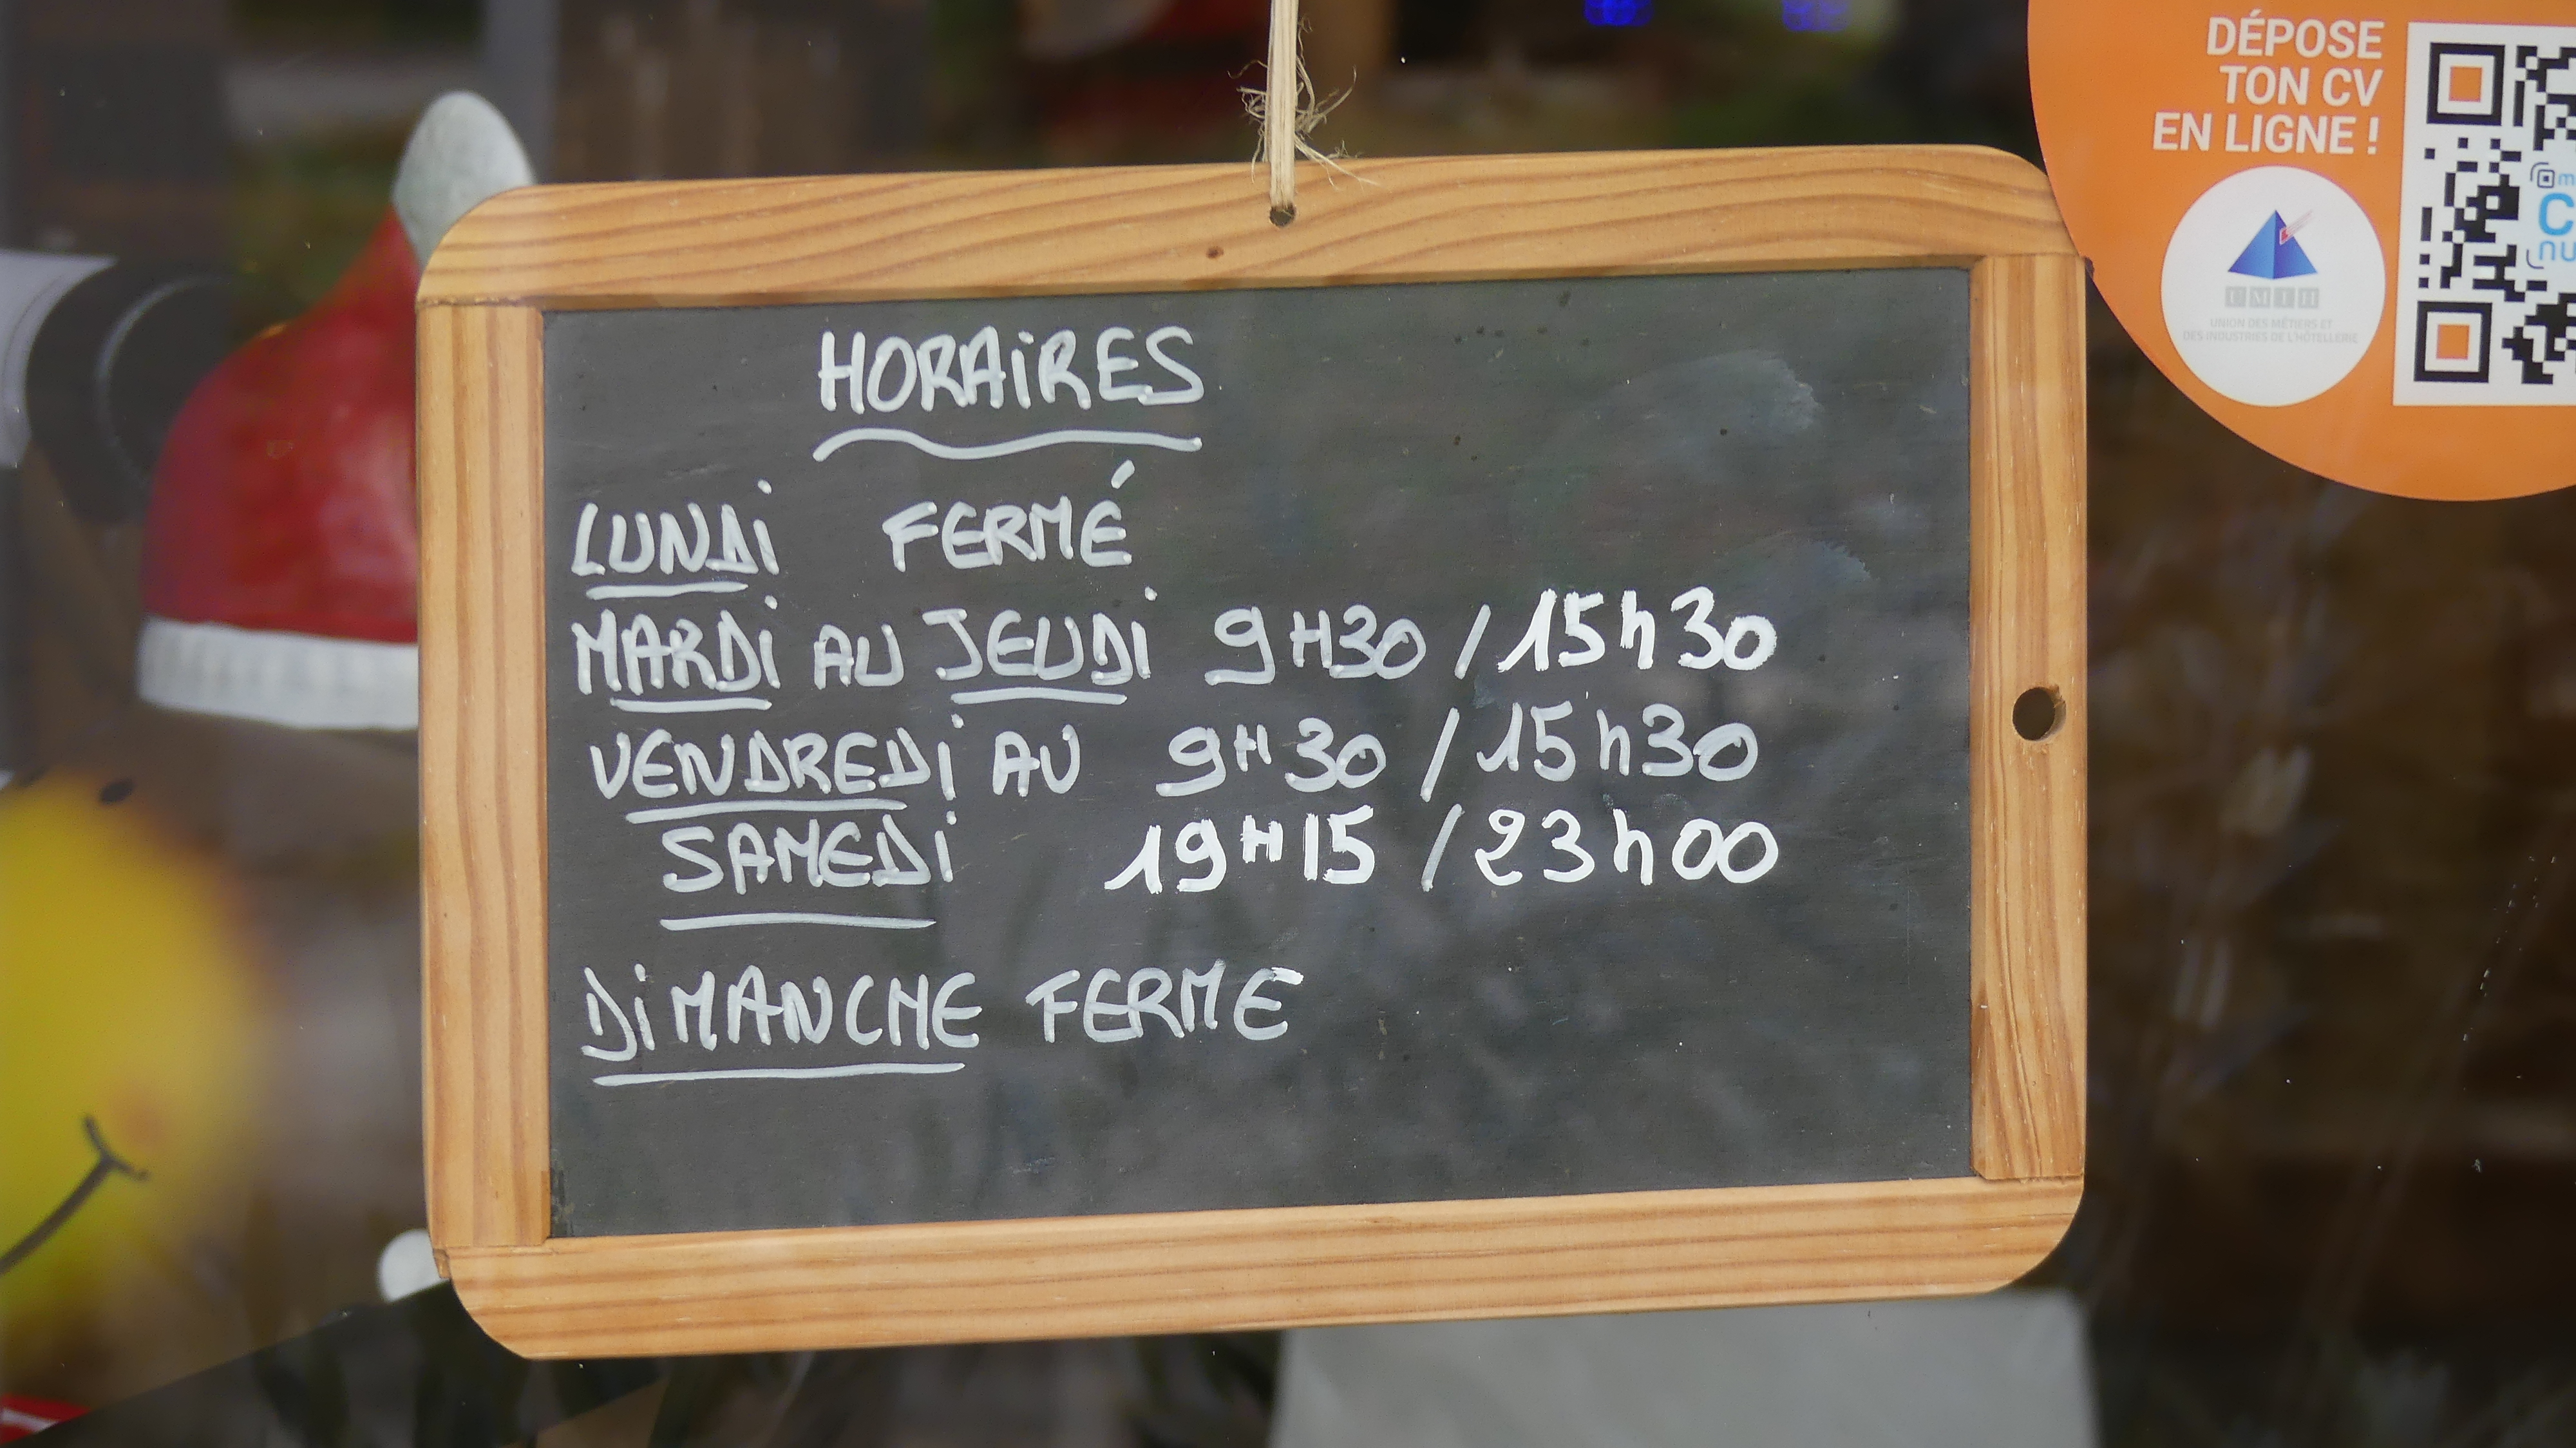 HORAIRES
LUNDI FERMÉ
MARDI AU JEUDI 9H30 / 15h30
VENDREDI AU 9H30 / 15h30
SAMEDI 19H15 / 23h00
DIMANCHE FERME
DÉPOSE
TON CV
EN LIGNE !
UMIH
UNION DES MÉTIERS ET
DES INDUSTRIES DE L'HÔTELLERIE